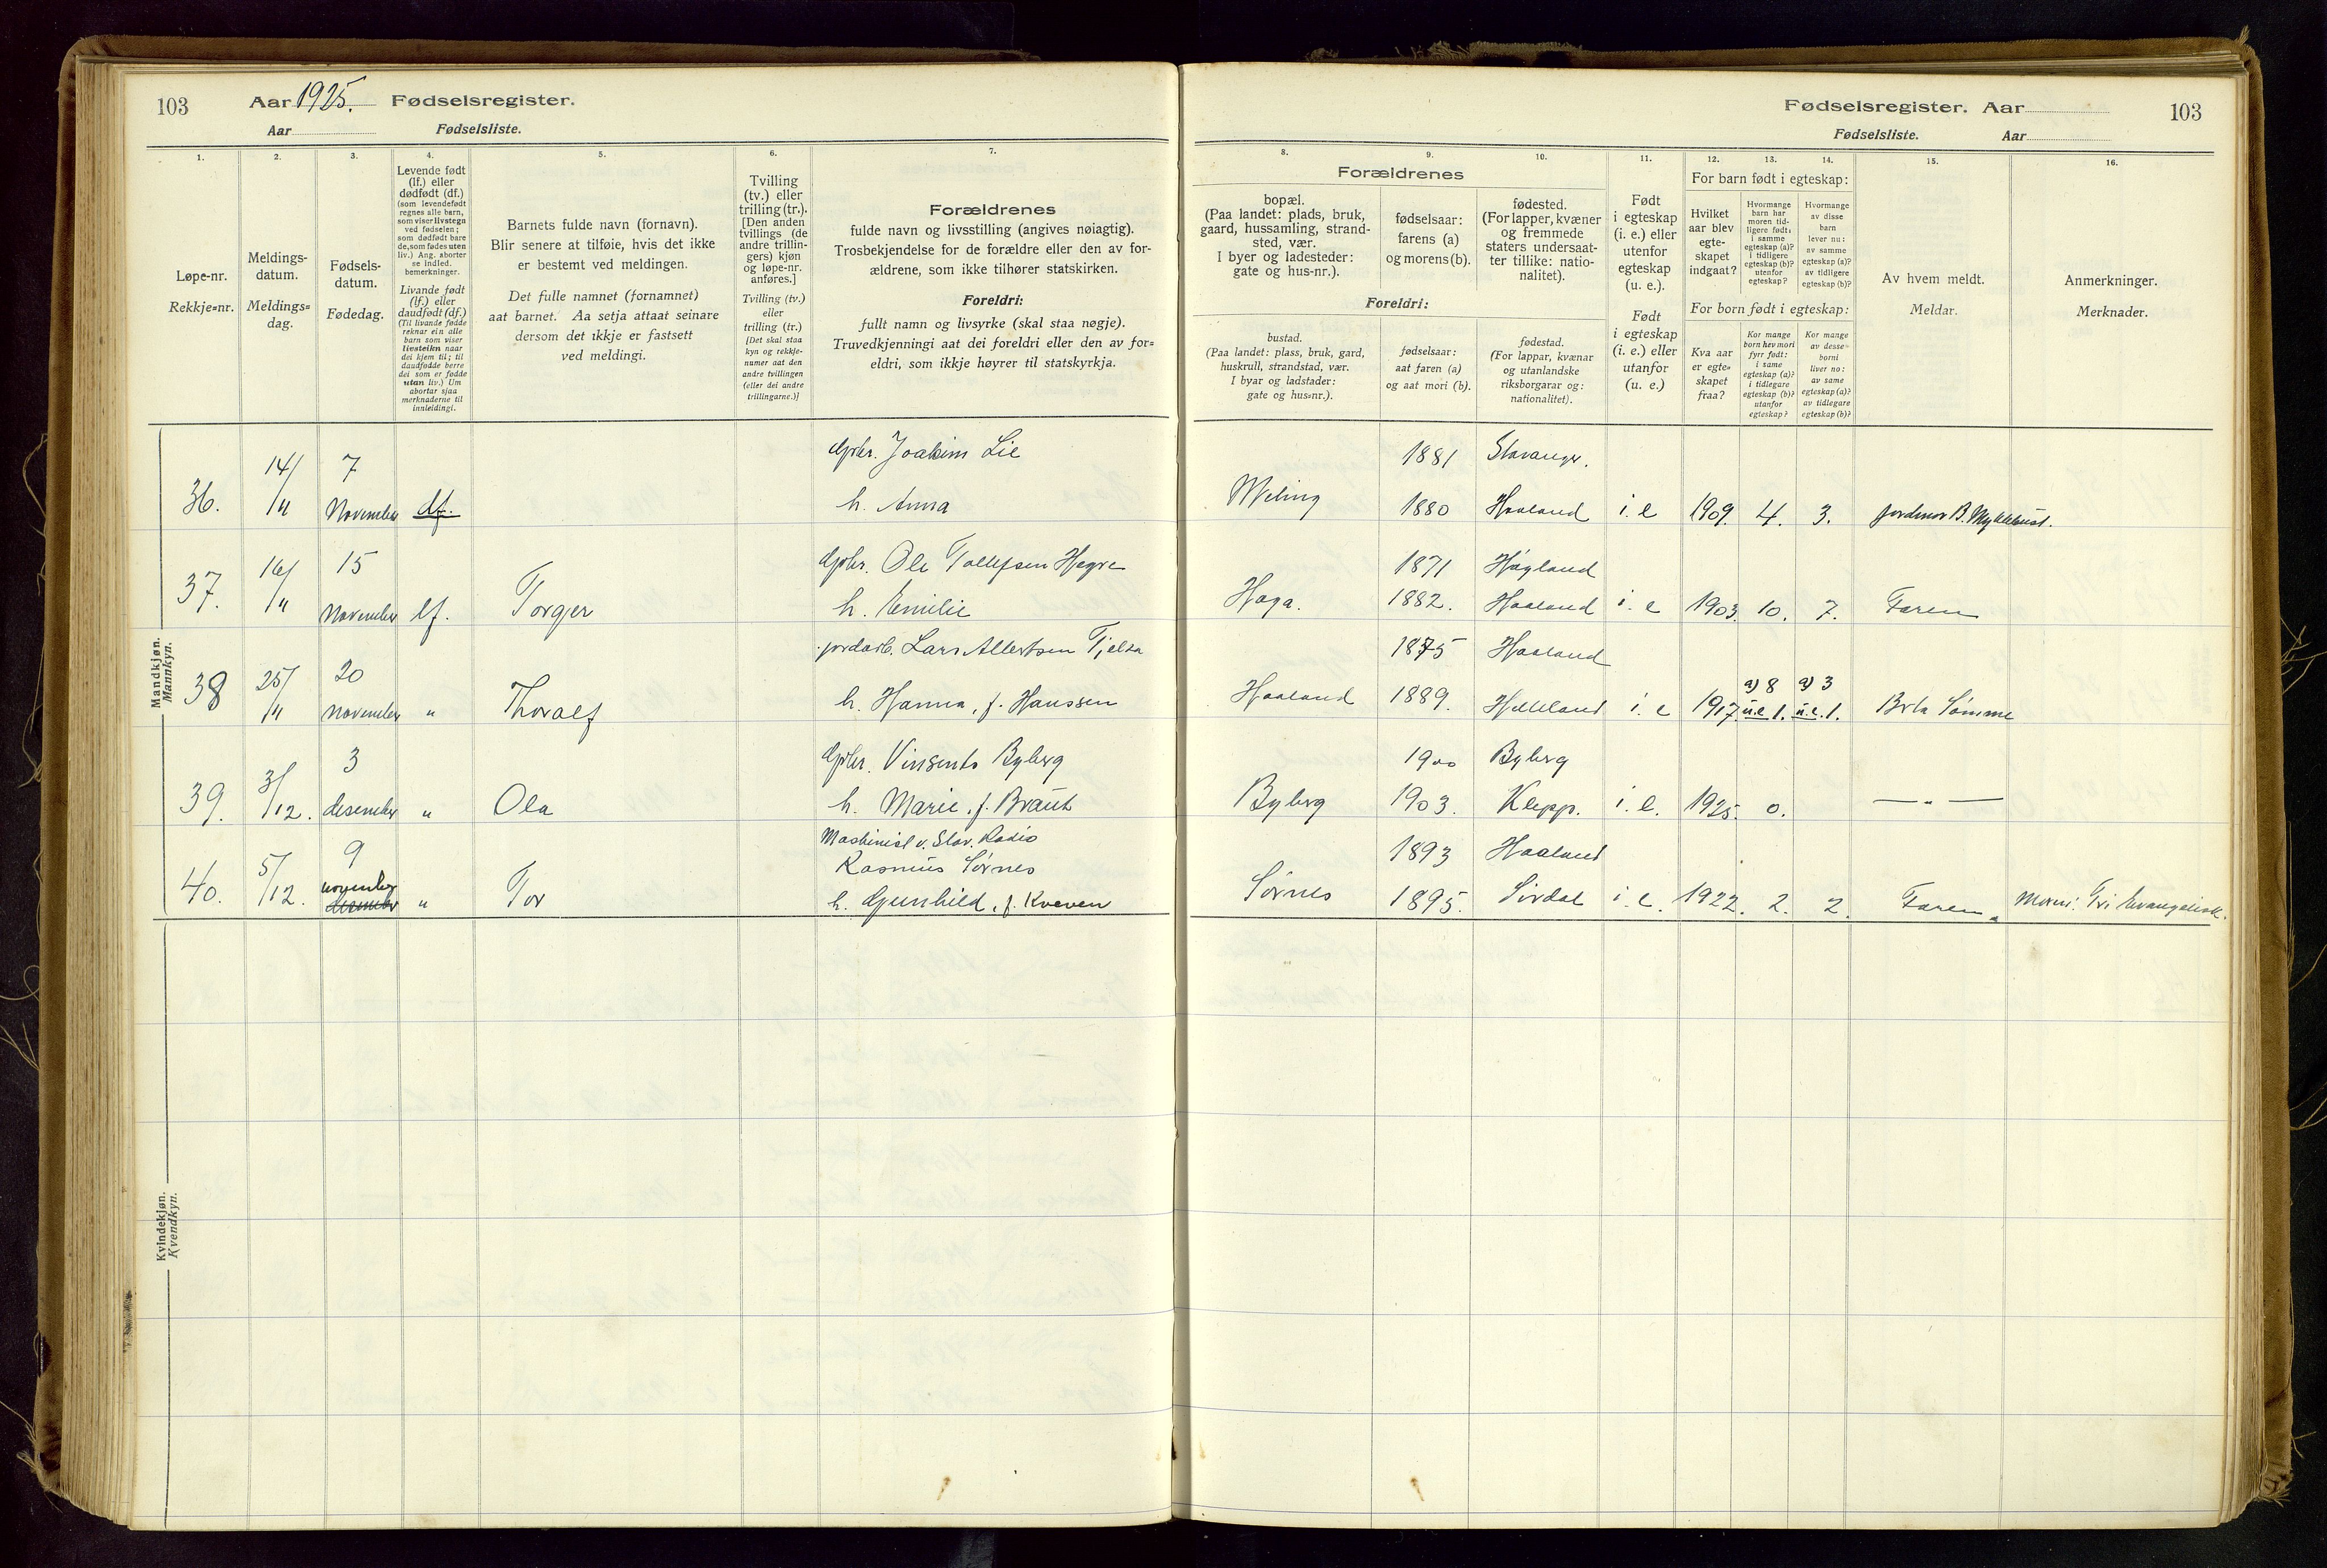 103 Aar 1925. Fødselsregister.
Aar Fødselsliste.
1.
Løpe-nr.
Rekkje=nr.
2.
Meldings-
datum.
Meldings=
dag.
3.
Fødsels-
datum.
Fødedag.
4.
Levende født
(lf.) eller
dødfødt (df.)
(som levendefødt
regnes alle barn,
som viser livstegn
ved fødselen;
som dødfødt bare
de, som fødes uten
liv.) Ang. aborter
se indled.
bemerkninger.
Livande født
(lf.) eller
daudfødt (df.)
(Til livande fødde
reknar ein alle
barn som viser
livsteikn naar
dei kjem til; til
daudfødde berre
dei som er fødde
utan liv.) Um
abortar sjaa
merknaderne til
innleidingi.
5.
Barnets fulde navn (fornavn).
Blir senere at tilføie, hvis det ikke
er bestemt ved meldingen.
Det fulle namnet (fornamnet)
aat barnet. Aa setja attaat seinare
dersom det ikkje er fastsett
ved meldingi.
6.
Tvilling
(tv.) eller
trilling (tr.).
[Den anden
tvillings (de
andre trillin-
gers) kjøn
og løpe-nr.
anføres.]
Tvilling (tv.)
eller
trilling (tr.)
[Det skal staa
kyn og rekkje-
numer aat den
andre tvillingen
(eller dei andre
trillingarne.)]
7.
Forældrenes
fulde navn og livsstilling (angives nøiagtig).
Trosbekjendelse for de forældre eller den av for-
ældrene, som ikke tilhører statskirken.
Foreldri:
fullt namn og livsyrke (skal staa nøgje).
Truvedkjenningi aat dei foreldri eller den av for=
eldri, som ikkje høyrer til statskyrkja.
Mandkjøn.
Mannkyn.
36. 14/11 7 November df. Gbr. Joakim Lie
h. Anna
37. 16/11 15 November lf. Torger Gbr. Ole Tollefsen Hegre
h. Emilie
38 25/11 20 November " Thoralf jordarb. Lars Allertsen Tjelta
h. Hanna, f. Hanssen
39. 3/12. 3 desember " Ola Gbr. Vinsents Byberg
h. Marie, f. Braut
40. 5/12. 9 november desember " Tor Maskinist v. Stav. Radio
Rasmus Sørnes
h. Gunhild, f. Kveven
Kvindekjøn.
Kvendkyn.
Fødselsregister. Aar 103
Fødselsliste. Aar
8.
Forældrenes
bopæl.
(Paa landet: plads, bruk,
gaard, hussamling, strand-
sted, vær.
I byer og ladesteder:
gate og hus-nr.).
Foreldri:
bustad.
(Paa landet: plass, bruk, gard,
huskrull, strandstad, vær.
I byar og ladstader:
gate og hus=nr.).
9.
fødselsaar:
farens (a)
og morens (b).
fødselsaar:
aat faren (a)
og aat mori (b).
10.
fødested.
(For lapper, kvæner
og fremmede
staters undersaat-
ter tillike: natio-
nalitet).
fødestad.
(For lappar, kvænar
og utanlandske
riksborgarar og:
nationalitet).
11.
Født
i egteskap
(i. e.) eller
utenfor
egteskap
(u. e.).
Født
i egteskap
(i. e.) eller
utanfor
(u. e.)
12. 13. 14.
For barn født i egteskap:
Hvilket
aar blev
egte-
skapet
indgaat?
Hvormange
barn har
moren tid-
ligere født:
i samme
egteskap (a)?
i tidligere
egteskap (b)?
utenfor
egteskap?
Hvormange
av disse
barn
lever nu:
av samme
egteskap (a)?
av tidligere
egteskap (b)?
For born født i egteskap:
Kva aar
er egte=
skapet
fraa?
Kor mange
born hev mori
fyrr født:
i same
egteskap (a)?
i tidlegare
egteskap (b)?
utanfor
egteskap?
Kor mange
av desse=
borni
liver no:
av same
egteskap (a)?
av tidlegare
egteskap (b)?
15.
Av hvem meldt.
Meldar.
16.
Anmerkninger.
Merknader.
1881 Stavanger.
Meling 1880 Haaland i. e 1909. 4. 3. jordmor B. Myklebust.
1871 Høgland
Haga. 1882. Haaland i. e 1903. 10. 7. Faren
1875 Haaland
Haaland 1889. Helleland i. e 1917 a) 8 u.e 1. a) 3 u.e. 1. Brta Sømme
1900 Byberg
Byberg 1903. Klepp. i. e. 1925. 0. — " —
1893 Haaland
Sørnes 1895. Sirdal i. e. 1922. 2. 2. Faren. Moren: Fri Evangelisk.